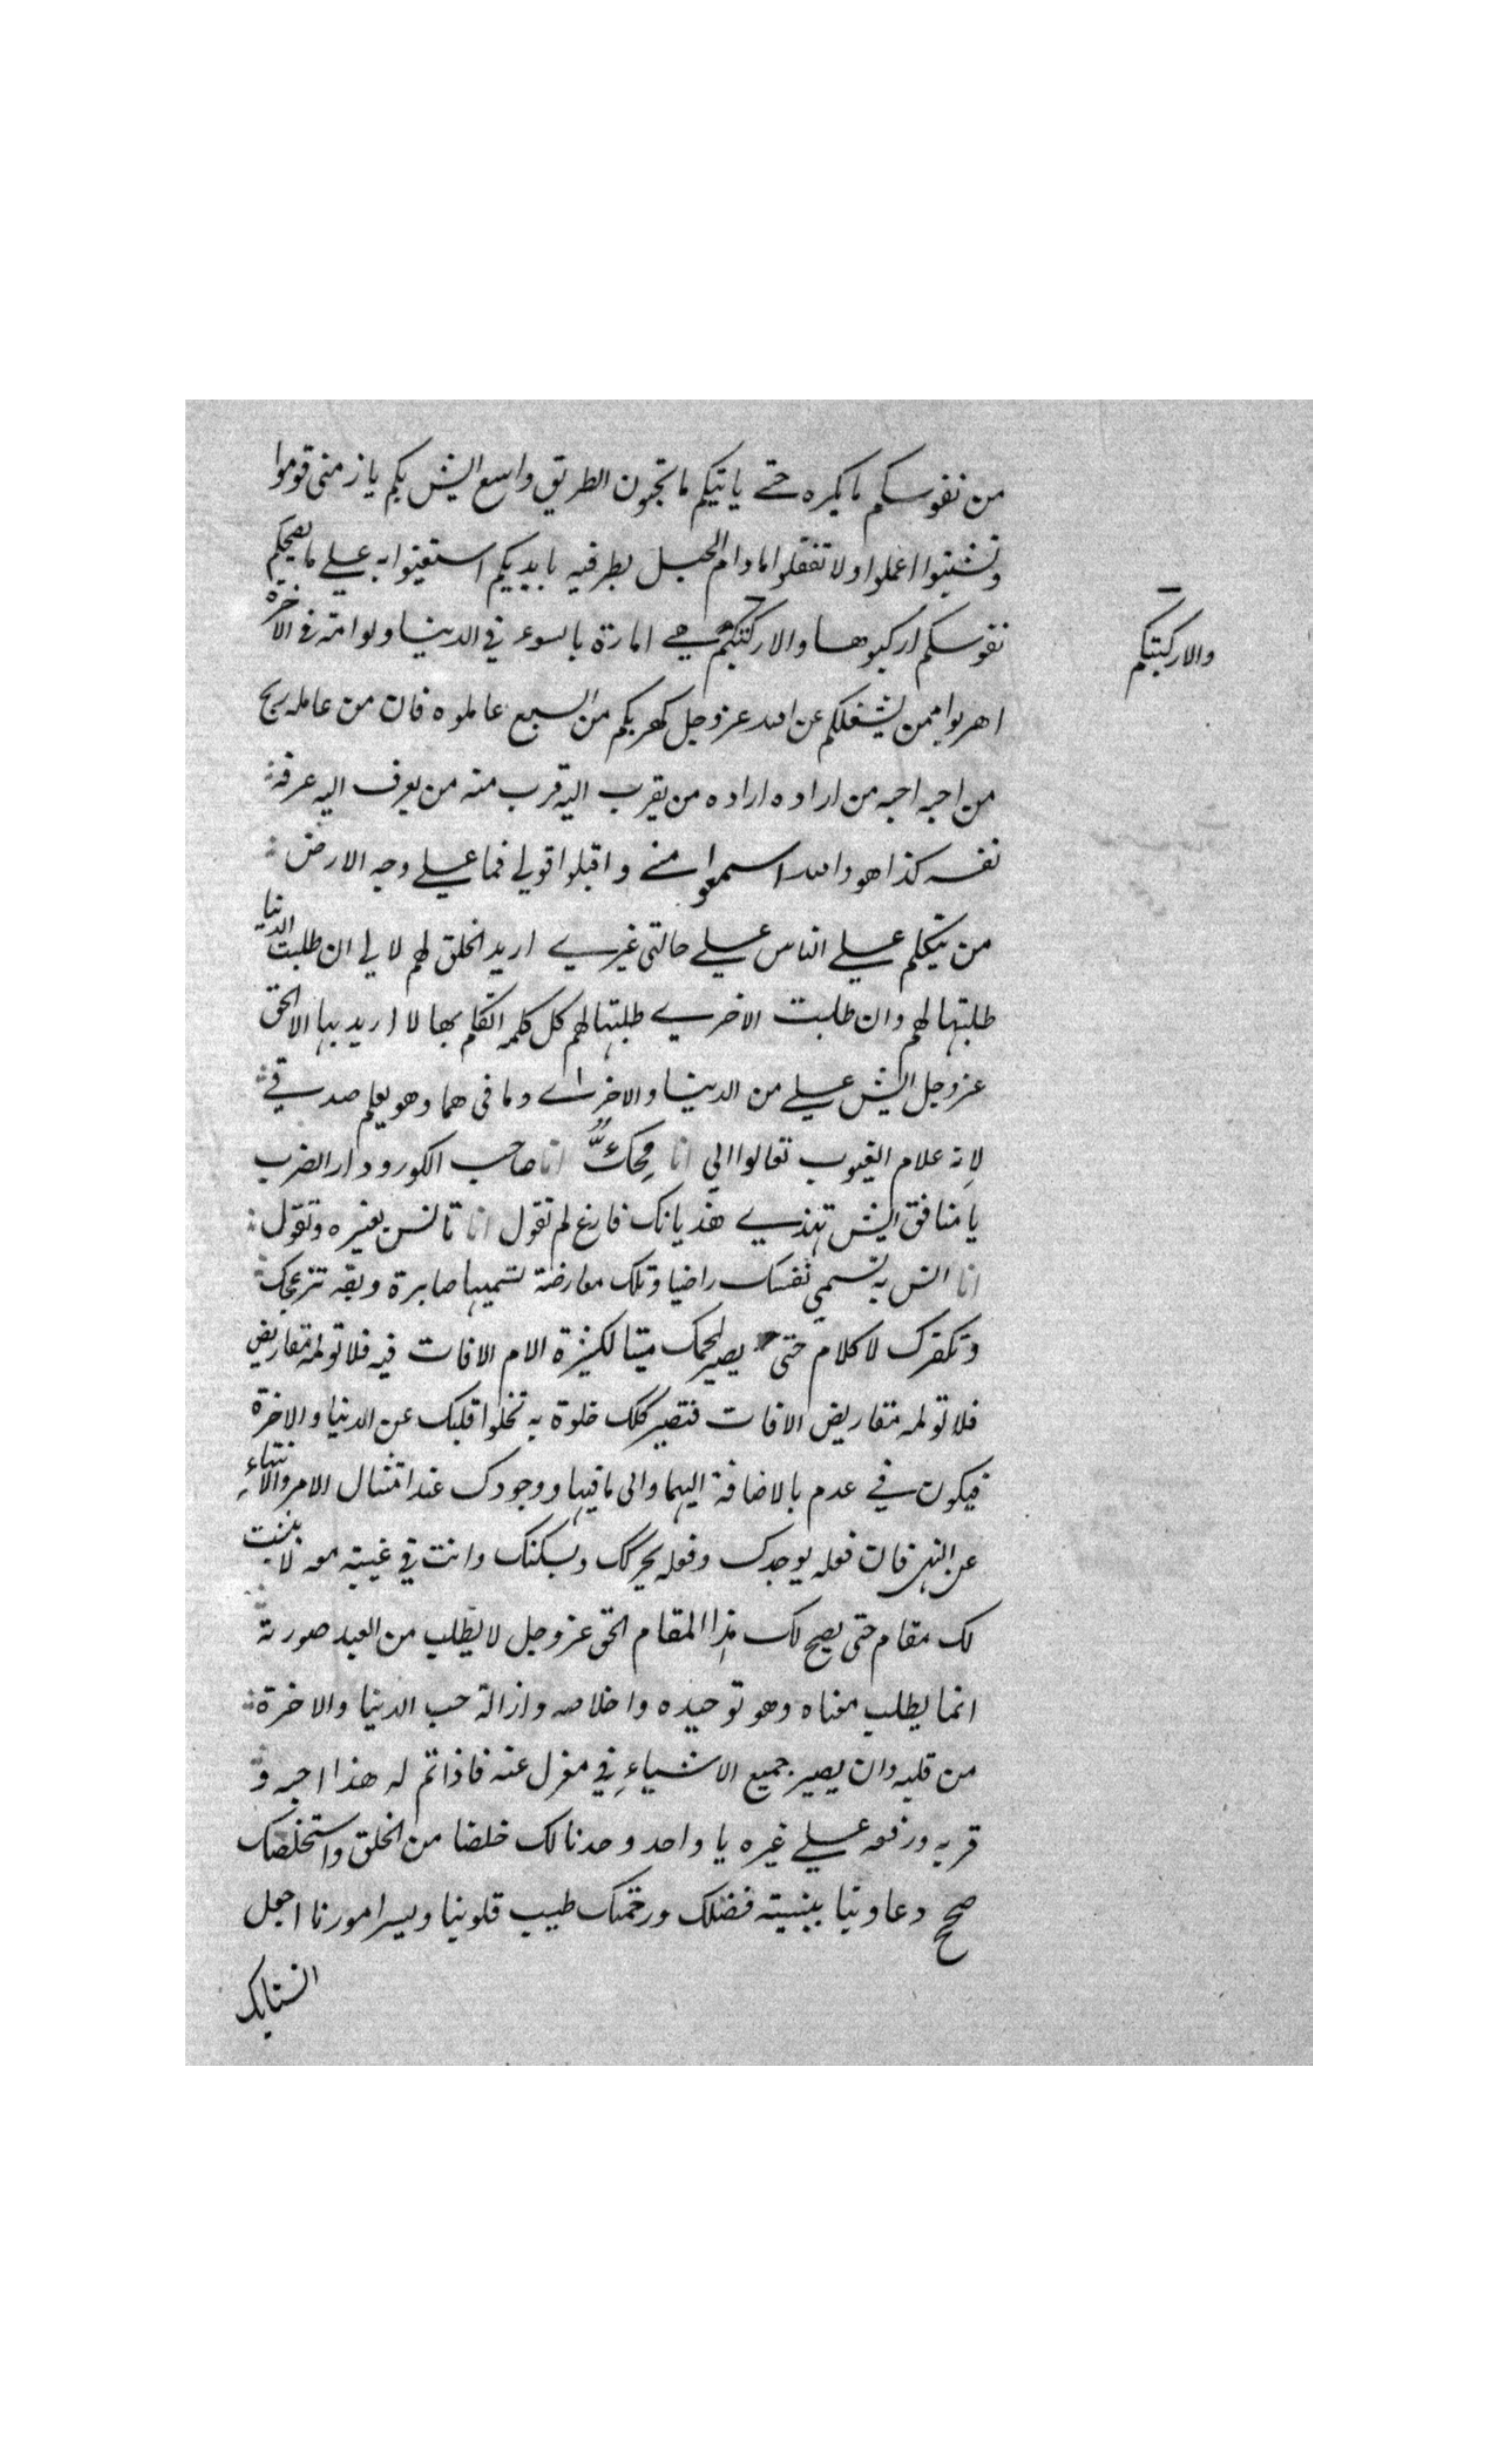 من نفوسكم ما يكره حتى ياتيكم ما تحبون الطريق واسع ايش بكم يا زمنى قوموا
وتشبثوا اعملوا ولا تغفلوا مادام الحبل بطرفيه بايديكم استعينوا به على ما يصحكم
نفوسكم اركبوها والا ركبتكم هي امارة بالسوء في الدنيا ولوامة في الاخرة
والا ركبتكم
اهربوا ممن يشغلكم عن الله عز وجل كهربكم من السبع عاملوه فان من عامله ربح
من احبه احبه من اراده اراده من يقرب اليه قرب منه من يعرف اليه عرفه
نفسه كذا هو والله اسمعوا مني واقبلوا قولي فما على وجه الارض
من يتكلم على الناس على حالتي غيري اريد الخلق لهم لا لي ان طلبت الدنيا
طلبتها لهم وان طلبت الاخرى طلبتها لهم كل كلمة اتكلم بها لا اريد بها الا الحق
عز وجل ايش علي من الدنيا والاخرى وما في هما وهو يعلم صدقي
لانه علام الغيوب تعالوا الي انا محك انا صاحب الكور ودار الضرب
يا منافق ايش تهذي هذيانك فارغ لم تقول انا تانس بغيره وتقول
انا انس به تسمي نفسك راضيا وتلك معارضة تسميها صابرة وبقه تزعجك
وتكفرك لا كلام حتى يصير لحمك ميتا لكثرة الام الافات فيه فلا تولمه مقاريض
فلا تولمه مقاريض الافات فتصير كلك خلوة به تخلوا قلبك عن الدنيا والاخرة
فيكون في عدم بالاضافة اليهما والى ما فيها ووجودك عند امتثال الامر والانتهاء
عن النهي فان فعله يوجدك وفعله يحركك ويسكنك وانت في غيبته معه لا يثبت
لك مقام حتى يصح لك هذا المقام الحق عز وجل لا يطلب من العبد صورته
انما يطلب معناه وهو توحيده واخلاصه وازالة حب الدنيا والاخرة
من قلبه وان يصير جميع الاشياء في معزل عنه فاذا تم له هذا احبه و
قربه ورفعه على غيره يا واحد وحدنا لك خلصنا من الخلق واستخلصنا لك
صحح دعاوينا ببينة فضلك ورحمتك طيب قلوبنا ويسر امورنا اجعل
انسنا بك